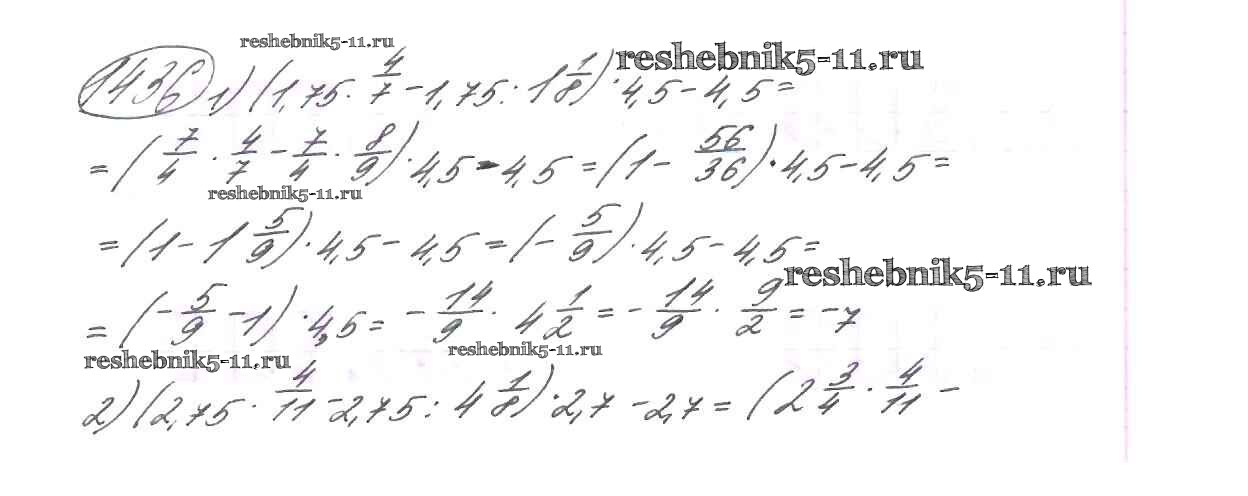 reshebnik5-11.ru
reshebnik5-11.ru
1436 1) (1,75 · 4/7 - 1,75 : 1 1/8) · 4,5 - 4,5 =
= (7/4 · 4/7 - 7/4 · 8/9) · 4,5 - 4,5 = (1 - 56/36) · 4,5 - 4,5 =
reshebnik5-11.ru
= (1 - 1 5/9) · 4,5 - 4,5 = (- 5/9) · 4,5 - 4,5 =
reshebnik5-11.ru
= (- 5/9 - 1) · 4,5 = - 14/9 · 4 1/2 = - 14/9 · 9/2 = -7
reshebnik5-11.ru
reshebnik5-11.ru
2) (2,75 · 4/11 - 2,75 : 4 1/8) · 2,7 - 2,7 = (2 3/4 · 4/11 -